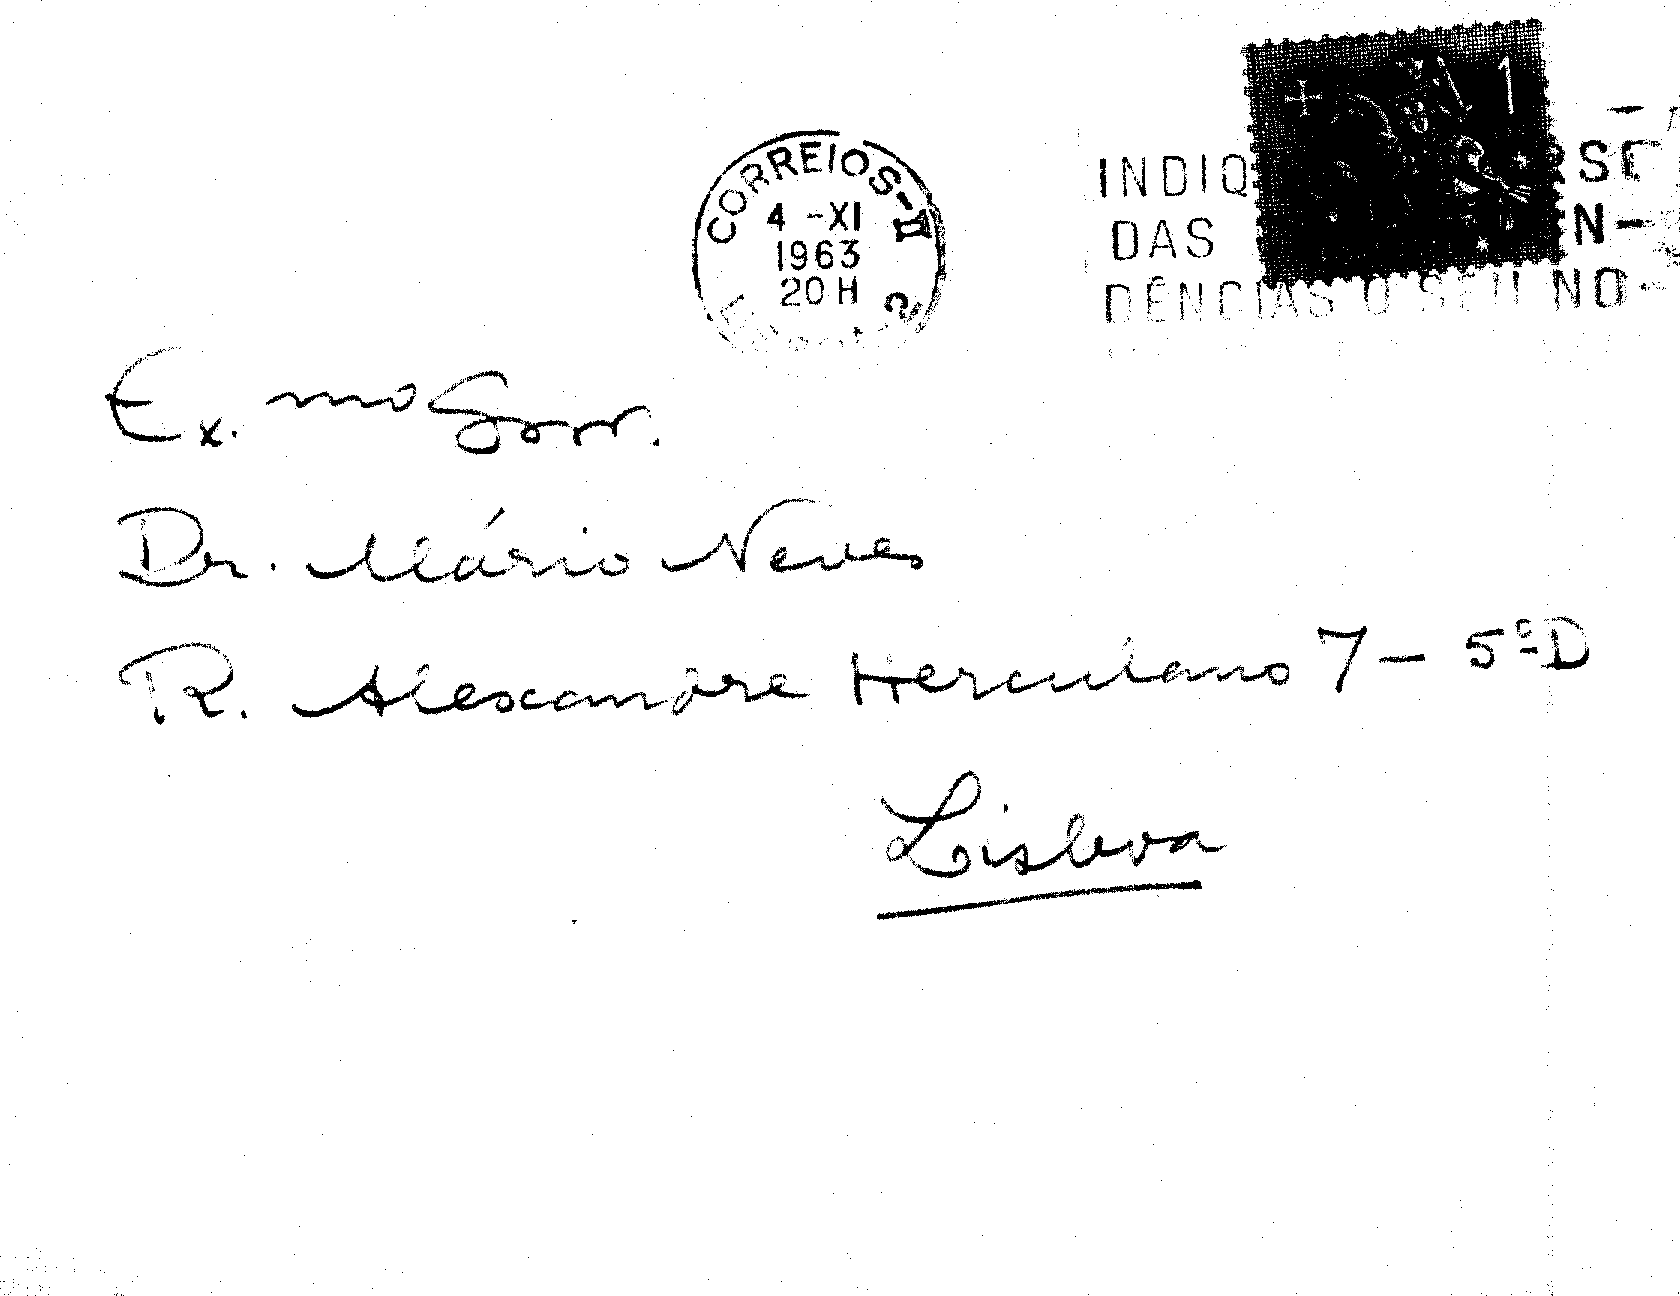 CORREIOS-
4 -XI
1963
20 H
INDIQ
DAS
DÊNCIAS O SEU NO-
Ex.mo Senr.
Dr. Mário Neves
R. Alexandre Herculano 7 - 5º D
Lisboa